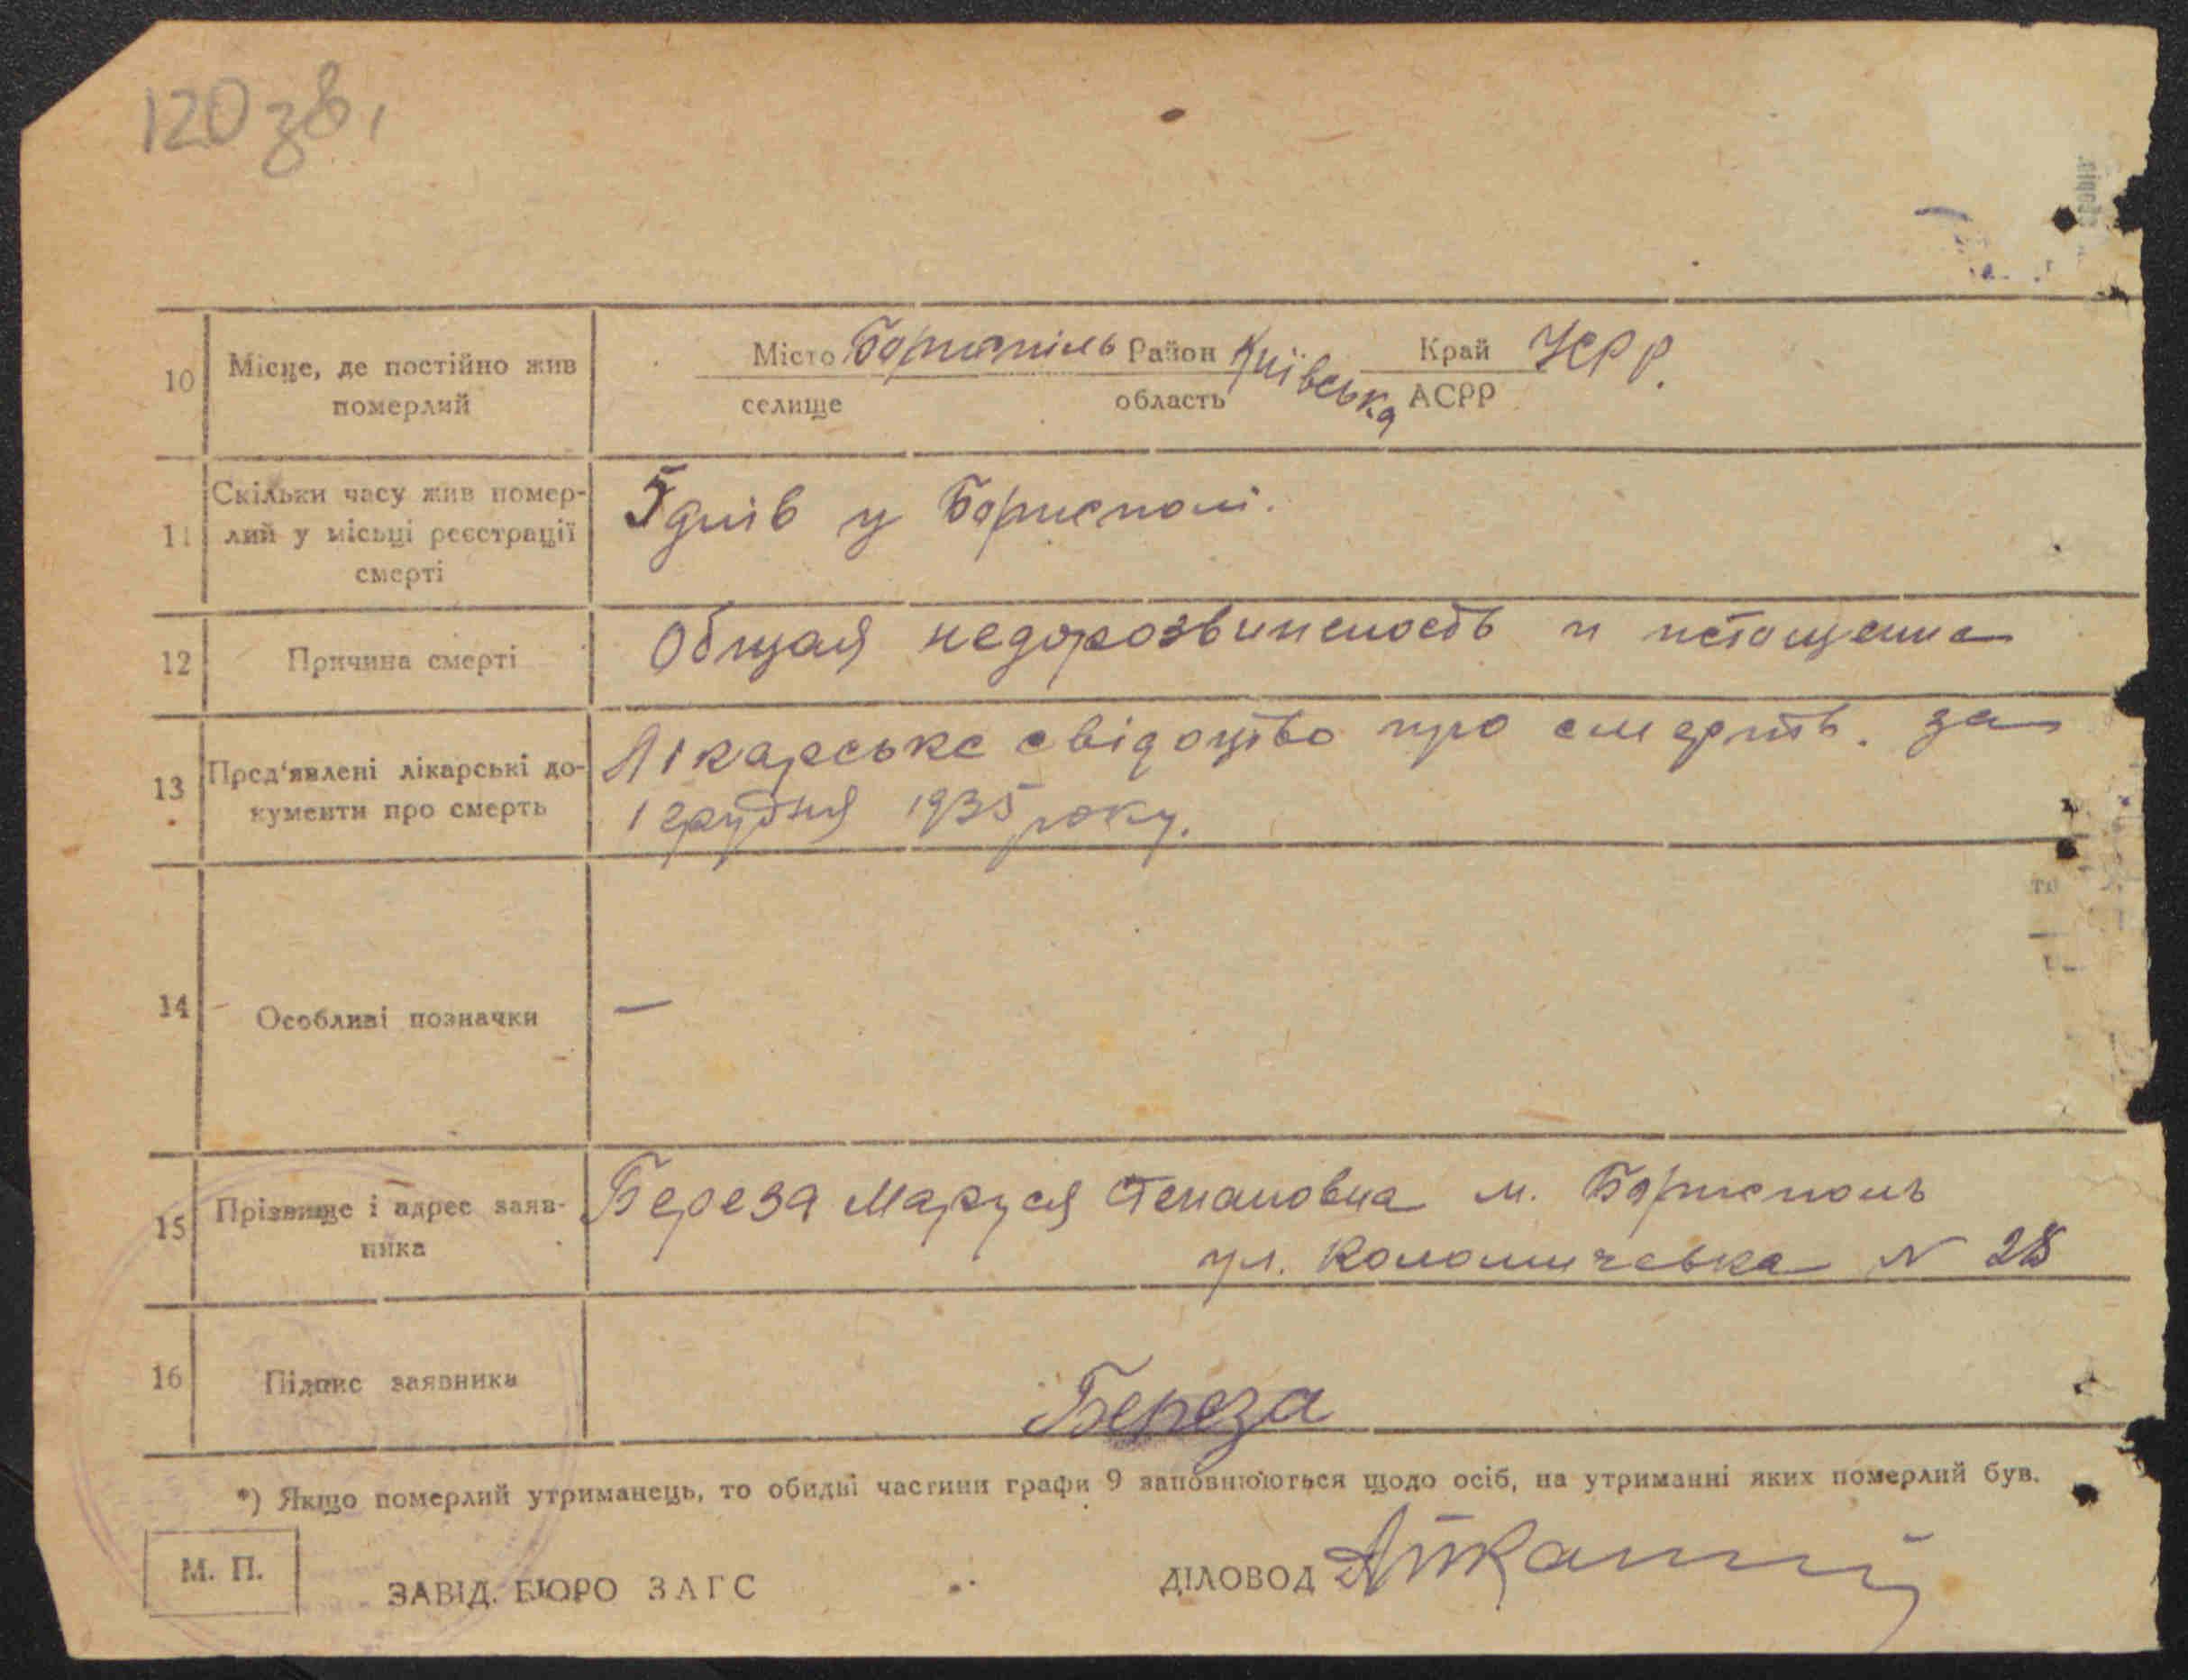 120 зв.
10 Місце, де постійно жив померлий
Місто Бориспіль Район Київська Край УСРР.
селище область АСРР
11 Скільки часу жив помер-
лий у місьці реєстрації
смерті
5 днів у Борисполі.
12 Причина смерті
Общая недорозвиненость и истощение
13 Пред'явлені лікарські до-
кументи про смерть
Лікарське свідоцтво про смерть. за
1 грудня 1935 року.
14 Особливі позначки
—
15 Прізвище і адрес заяв-
ника
Береза Маруся Степановна м. Борисполь
ул. N 28
16 Підпис заявника
Береза
*) Якщо померлий утриманець, то обидві частини графи 9 заповнюються щодо осіб, на утриманні яких померлий був.
М. П.
ЗАВІД. БЮРО ЗАГС
ДІЛОВОД